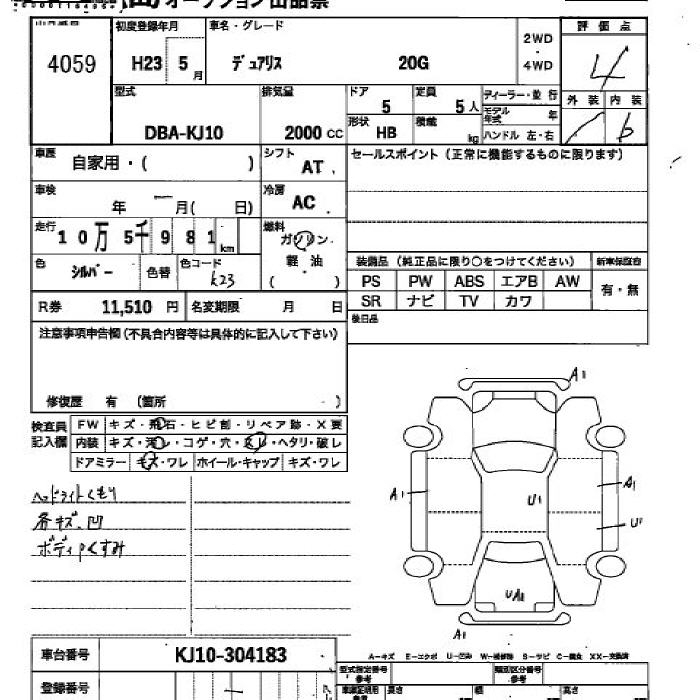 オークション出品票
4059
初度登録年月 H23 5月
車名・グレード デュアリス 20G
2WD・4WD
評価点 4
型式 DBA-KJ10
排気量 2000 cc
ドア 5
定員 5人
ディーラー・並行
モデル年式 年
ハンドル 左・右
形状 HB
積載 kg
外装 内装 b
車歴 自家用・( )
シフト AT
セールスポイント (正常に機能するものに限ります)
車検 年 月( 日)
冷房 AC
走行 10万5千981km
燃料 ガソリン 軽・油 ( )
色 シルバー 色替 色コード K23
装備品 (純正品に限り○をつけてください) 新車保証書
PS PW ABS エアB AW 有・無
SR ナビ TV カワ
R券 11,510 円 名変期限 月 日
後日品
注意事項申告欄(不具合内容等は具体的に記入して下さい)
修復歴 有 (箇所 )
検査員記入欄
FW キズ・飛石・ヒビ割・リペア跡・X要
内装 キズ・汚レ・コゲ・穴・スレ・ヘタリ・破レ
ドアミラー キズ・ワレ ホイール・キャップ キズ・ワレ
ヘッドライトくもり
各キズ、凹
ボディPくすみ
A1
A1 U1 A1
U1
UA2
A1
車台番号 KJ10-304183
A-キズ E-エクボ U-凹み W-補修跡 S-サビ C-腐食 XX-交換済
型式指定番号 参考
類別区分番号 参考
登録番号
車庫証明用参考 長さ 幅 高さ